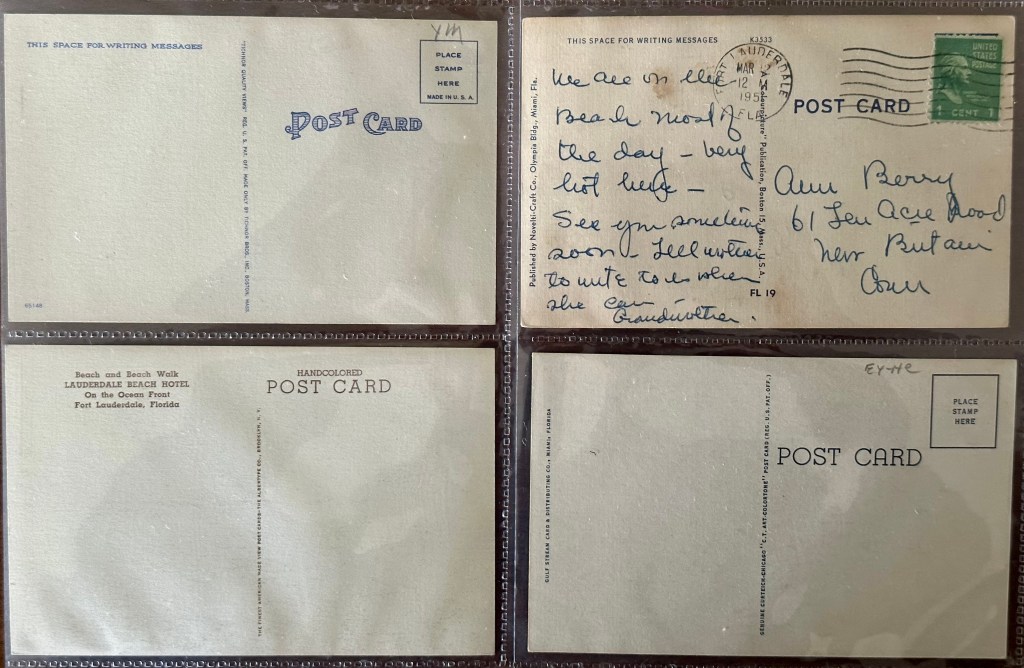 YM
THIS SPACE FOR WRITING MESSAGES
PLACE
STAMP
HERE
MADE IN U.S.A.
POST CARD
"TICHNOR QUALITY VIEWS," REG. U. S. PAT. OFF. MADE ONLY BY TICHNOR BROS., INC., BOSTON, MASS.
65148
THIS SPACE FOR WRITING MESSAGES K3533
FORT LAUDERDALE
MAR
12 M
195
FLA
UNITED
STATES
POSTAGE
1 CENT 1
POST CARD
Published by Novelti-Craft Co., Olympia Bldg., Miami, Fla.
Publication, Boston 15, Mass., U.S.A.
We are on the
Beach most of
the day – very
hot here –
See you sometime
soon – Tell mother
to write to us when
she can
Grandmother.
FL 19
Ann Berry
61 Ten Acre Road
New Britain
Conn
Beach and Beach Walk
LAUDERDALE BEACH HOTEL
On the Ocean Front
Fort Lauderdale, Florida
HANDCOLORED
POST CARD
THE FINEST AMERICAN MADE VIEW POST CARDS—THE ALBERTYPE CO., BROOKLYN, N. Y.
EX-HC
PLACE
STAMP
HERE
POST CARD
GULF STREAM CARD & DISTRIBUTING CO., MIAMI, FLORIDA
GENUINE CURTEICH-CHICAGO "C.T. ART-COLORTONE" POST CARD (REG. U.S. PAT. OFF.)